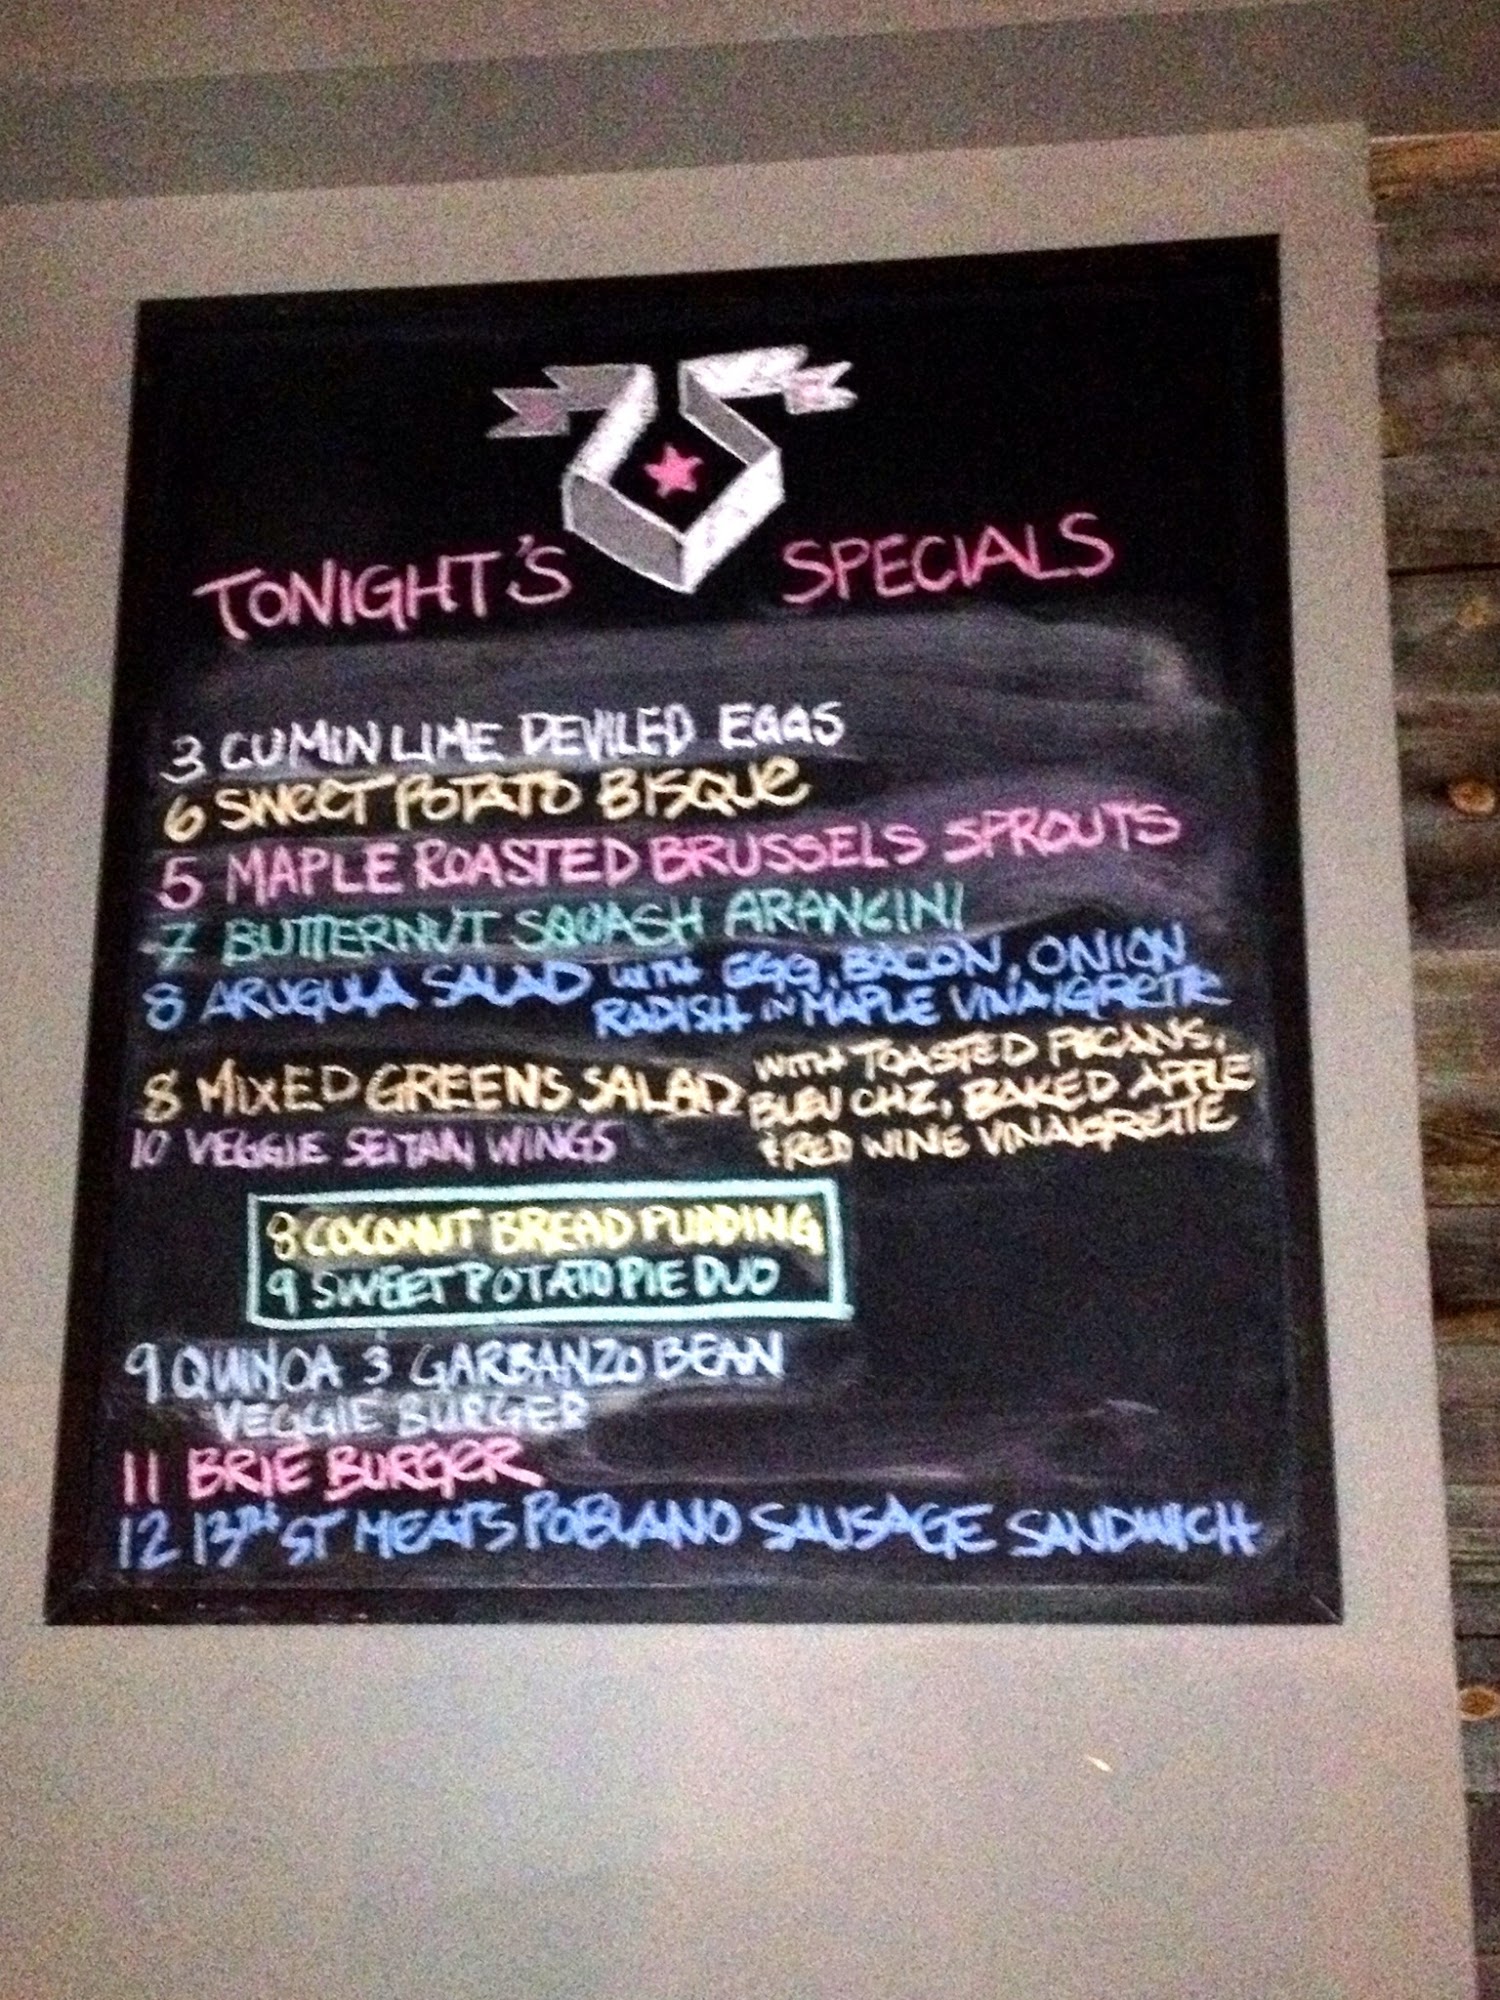 TONIGHT'S SPECIALS
3 CUMIN LIME DEVILED EGGS
6 SWEET POTATO BISQUE
5 MAPLE ROASTED BRUSSELS SPROUTS
7 BUTTERNUT SQUASH ARANCINI
8 ARUGULA SALAD WITH EGG, BACON, ONION
RADISH IN MAPLE VINAIGRETTE
8 MIXED GREENS SALAD WITH TOASTED PECANS,
BLEU CHZ, BAKED APPLE
& RED WINE VINAIGRETTE
10 VEGGIE SEITAN WINGS
8 COCONUT BREAD PUDDING
9 SWEET POTATO PIE DUO
9 QUINOA & GARBANZO BEAN
VEGGIE BURGER
11 BRIE BURGER
12 13TH ST MEATS POBLANO SAUSAGE SANDWICH